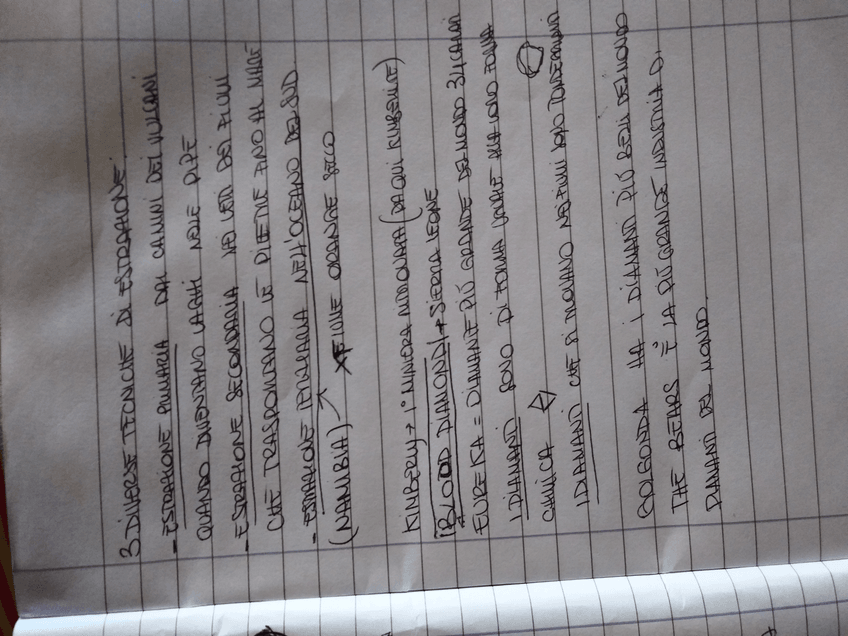 3 DIVERSE TECNICHE DI ESTRAZIONE:
- ESTRAZIONE PRIMARIA DAI CAMINI DEI VULCANI
QUANDO DIVENTANO LARGHI NELLE PIPE
- ESTRAZIONE SECONDARIA NEI LETTI DEI FIUMI
CHE TRASPORTANO LE PIETRE FINO AL MARE
- ESTRAZIONE TERZIARIA NELL'OCEANO DEL SUD
(NAMIBIA) → FIUME ORANGE SECCO
KIMBERLY → 1° MINIERA (DA QUI KIMBERLITE)
BLOOD DIAMOND → SIERRA LEONE
EUREKA = DIAMANTE PIÙ GRANDE DEL MONDO 24 CARATI
I DIAMANTI SONO DI FORMA
CUBICA
I DIAMANTI CHE SI TROVANO NEI FIUMI SONO TONDEGGIANTI
GOLGONDA HA I DIAMANTI PIÙ BELLI DEL MONDO
THE BEARS È LA PIÙ GRANDE INDUSTRIA DI
DIAMANTI DEL MONDO.